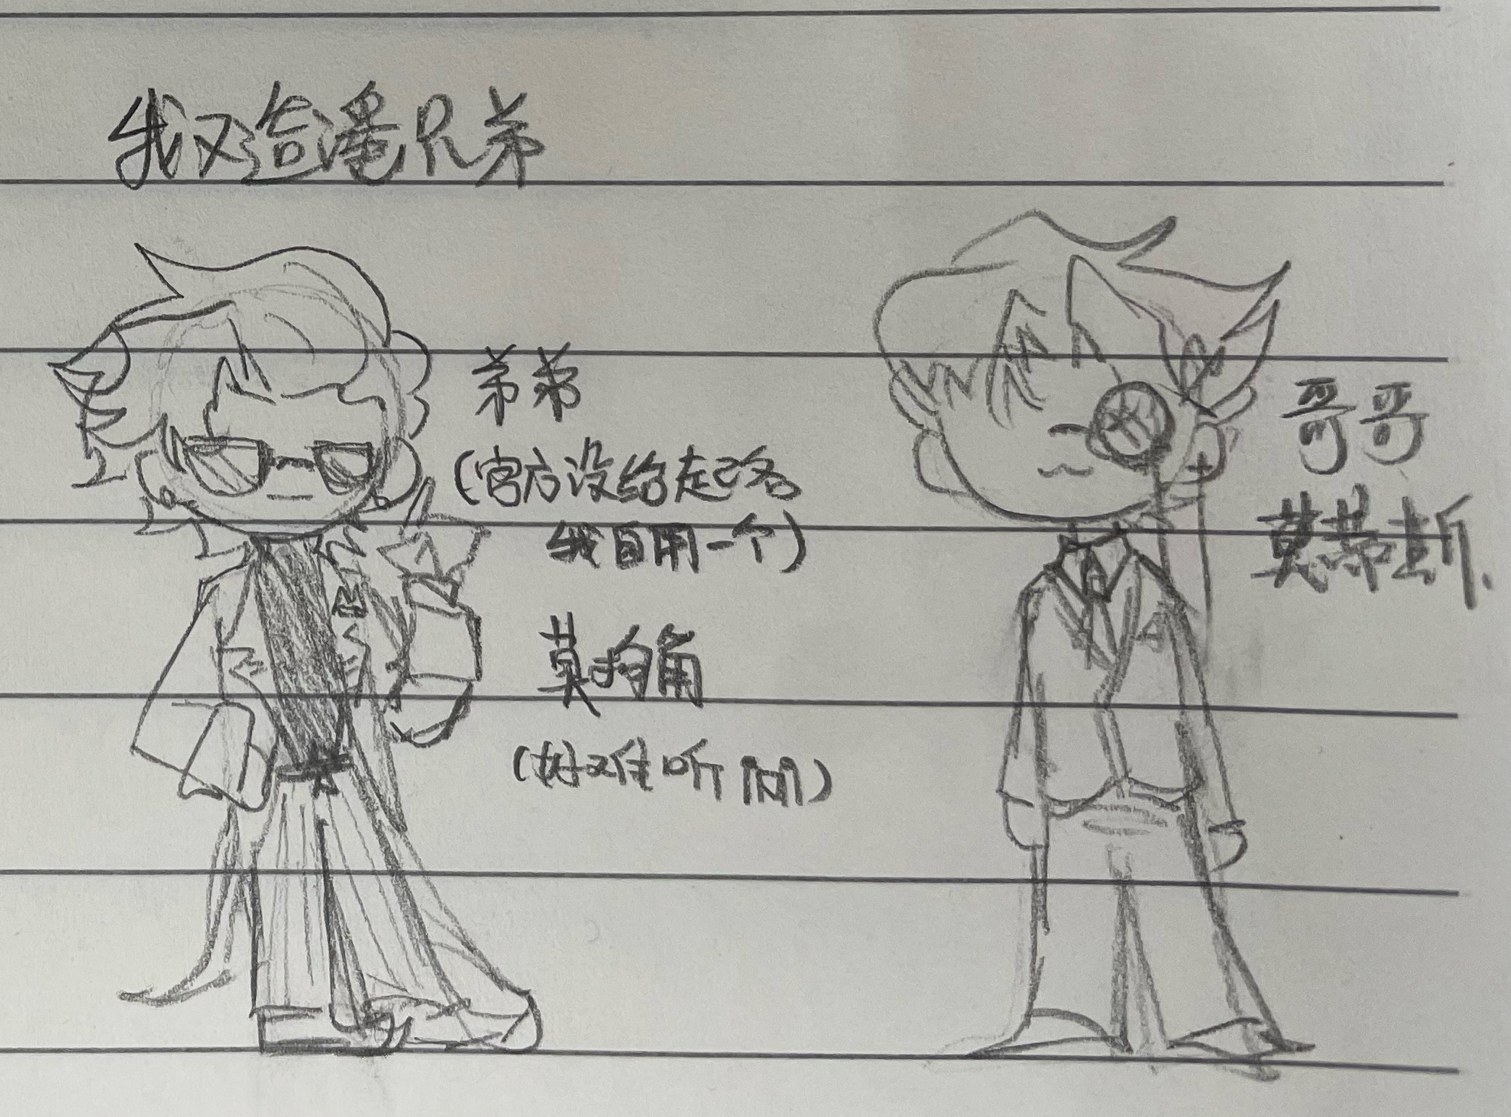 我又造潘兄弟
弟弟
(官方没给起名
我自用一个)
莫的角
(好难听啊)
哥哥
莫蒂斯.